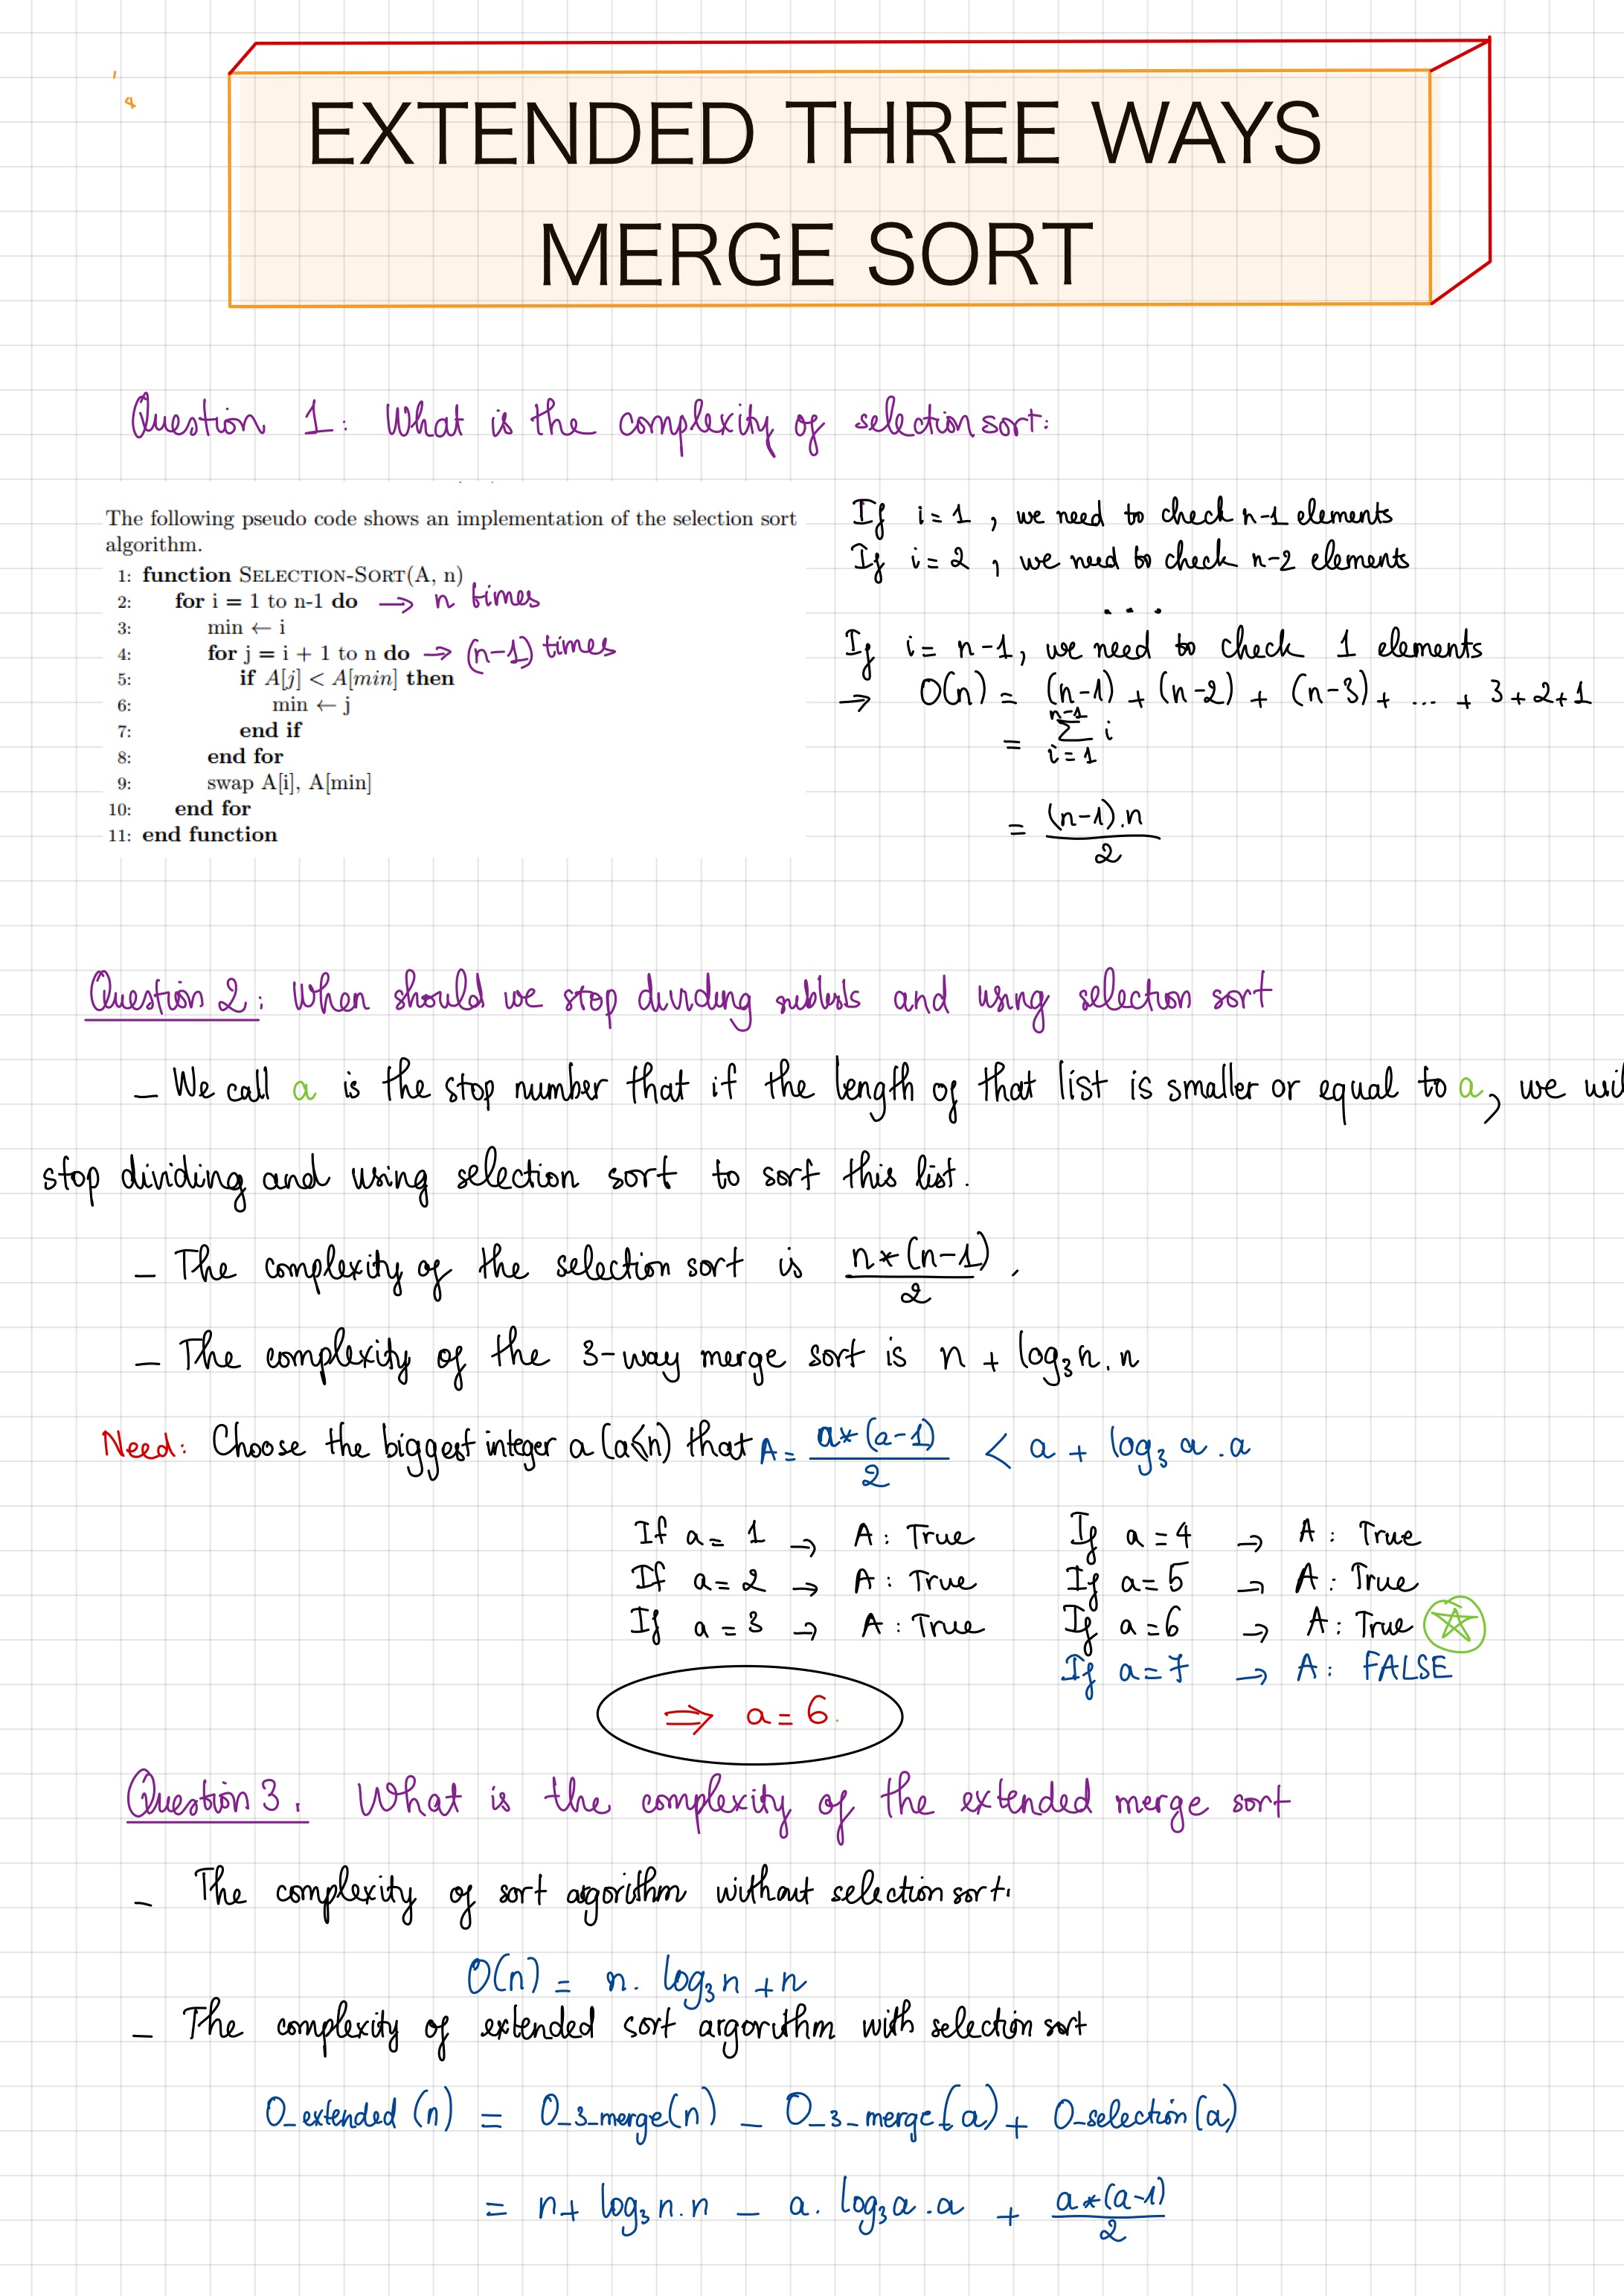 EXTENDED THREE WAYS
MERGE SORT
Question 1: What is the complexity of selection sort:
The following pseudo code shows an implementation of the selection sort
algorithm.
1: function SELECTION-SORT(A, n)
2: for i = 1 to n-1 do → n times
3: min ← i
4: for j = i + 1 to n do → (n-1) times
5: if A[j] < A[min] then
6: min ← j
7: end if
8: end for
9: swap A[i], A[min]
10: end for
11: end function
If i = 1, we need to check n-1 elements
If i = 2, we need to check n-2 elements
...
If i = n-1, we need to check 1 elements
→ O(n) = (n-1) + (n-2) + (n-3) + ... + 3+2+1
= \sum_{i=1}^{n-1} i
= \frac{(n-1).n}{2}
Question 2: When should we stop dividing sublists and using selection sort
- We call a is the stop number that if the length of that list is smaller or equal to a, we wil
stop dividing and using selection sort to sort this list.
- The complexity of the selection sort is \frac{n*(n-1)}{2}.
- The complexity of the 3-way merge sort is n + log₃n.n
Need: Choose the biggest integer a (a≤n) that A = \frac{a*(a-1)}{2} < a + log₃a.a
If a = 1 → A: True
If a = 2 → A: True
If a = 3 → A: True
If a = 4 → A: True
If a = 5 → A: True
If a = 6 → A: True
If a = 7 → A: FALSE
⇒ a = 6.
Question 3. What is the complexity of the extended merge sort
- The complexity of sort agorithm without selection sort.
O(n) = n. log₃n + n
- The complexity of extended sort argorithm with selection sort
O_extended (n) = O_3_merge(n) - O_3_merge(a) + O_selection(a)
= n + log₃n.n - a. log₃a.a + \frac{a*(a-1)}{2}